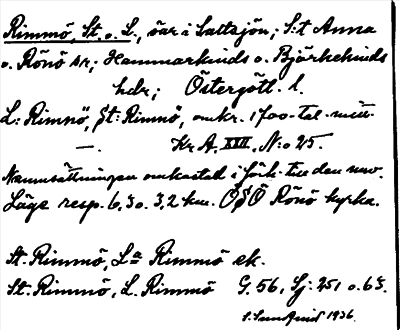 Rimmö, St. o. L., öar i Saltsjön; S:t Anna
o. Rönö sr; Hammarkinds o. Björkekinds
hdr; Östergötl. l.
L: Rimnö, St: Rimnö, omkr. 1700-tal. mitt
— Kr A. XXII. N:o 25.
Namnsättningen omkastad i förh. till den nuv.
Läge resp. 6,3 o. 3,2 km. OSO Rönö kyrka.
St. Rimmö, La Rimmö ek.
St. Rimmö, L. Rimmö G. 56, Sj: 251 o. 63.
1936